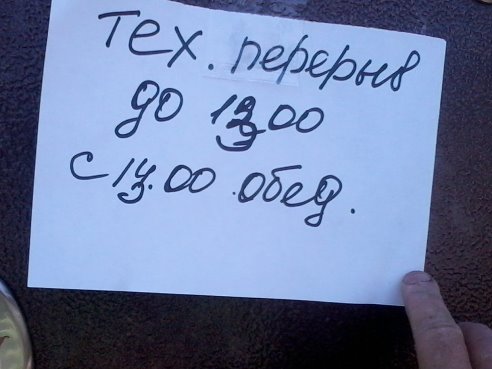 Тех. перерыв
до 13.00
с 13.00 обед.